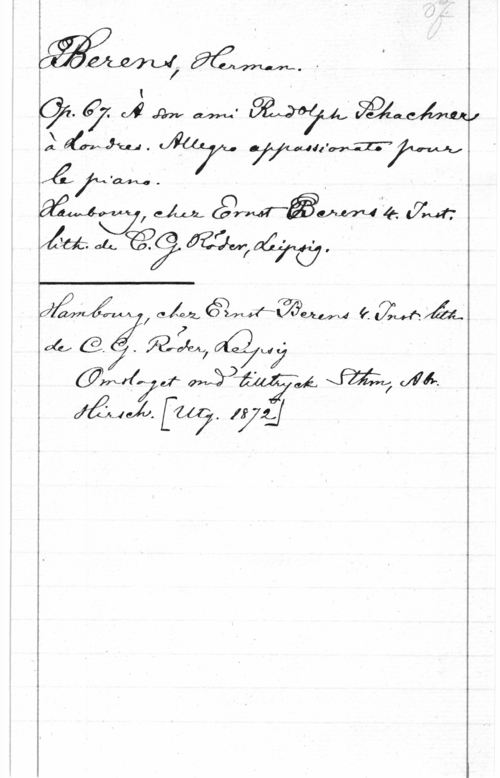 Berens, Herman.
Op. 67. À son ami Rudolph Schachner
à Londres. Allegro appassionato pour
le piano.
Hambourg, chez Ernst Berens 4. Inst.
lith. de C. G. Röder, Leipzig.
Hambourg, chez Ernst Berens 4. Inst. lith
de C. G. Röder, Leipsig
Omslaget med tilltryck Sthm, Abr.
Hirsch. [Utg. 1872]